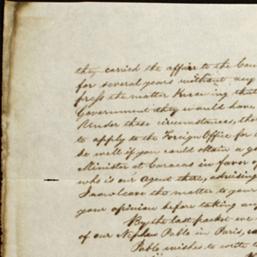 they carried the affair to the Cou
for several years without any
press the matter knowing that
Government they would have
Under these circumstances, tho
to apply to the Foreign Office for
be well if you could obtain a
Minister at Caracas in favor of
who is our Agent there, advising
I now leave the matter to your
your opinion before taking any
By the last packet we
of our Nephew Pablo in Paris,
Pablo wishes to write to